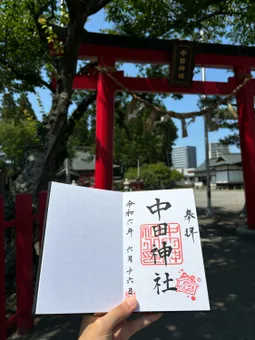 中田神社
奉拝
中田神社
令和六年 六月十六日